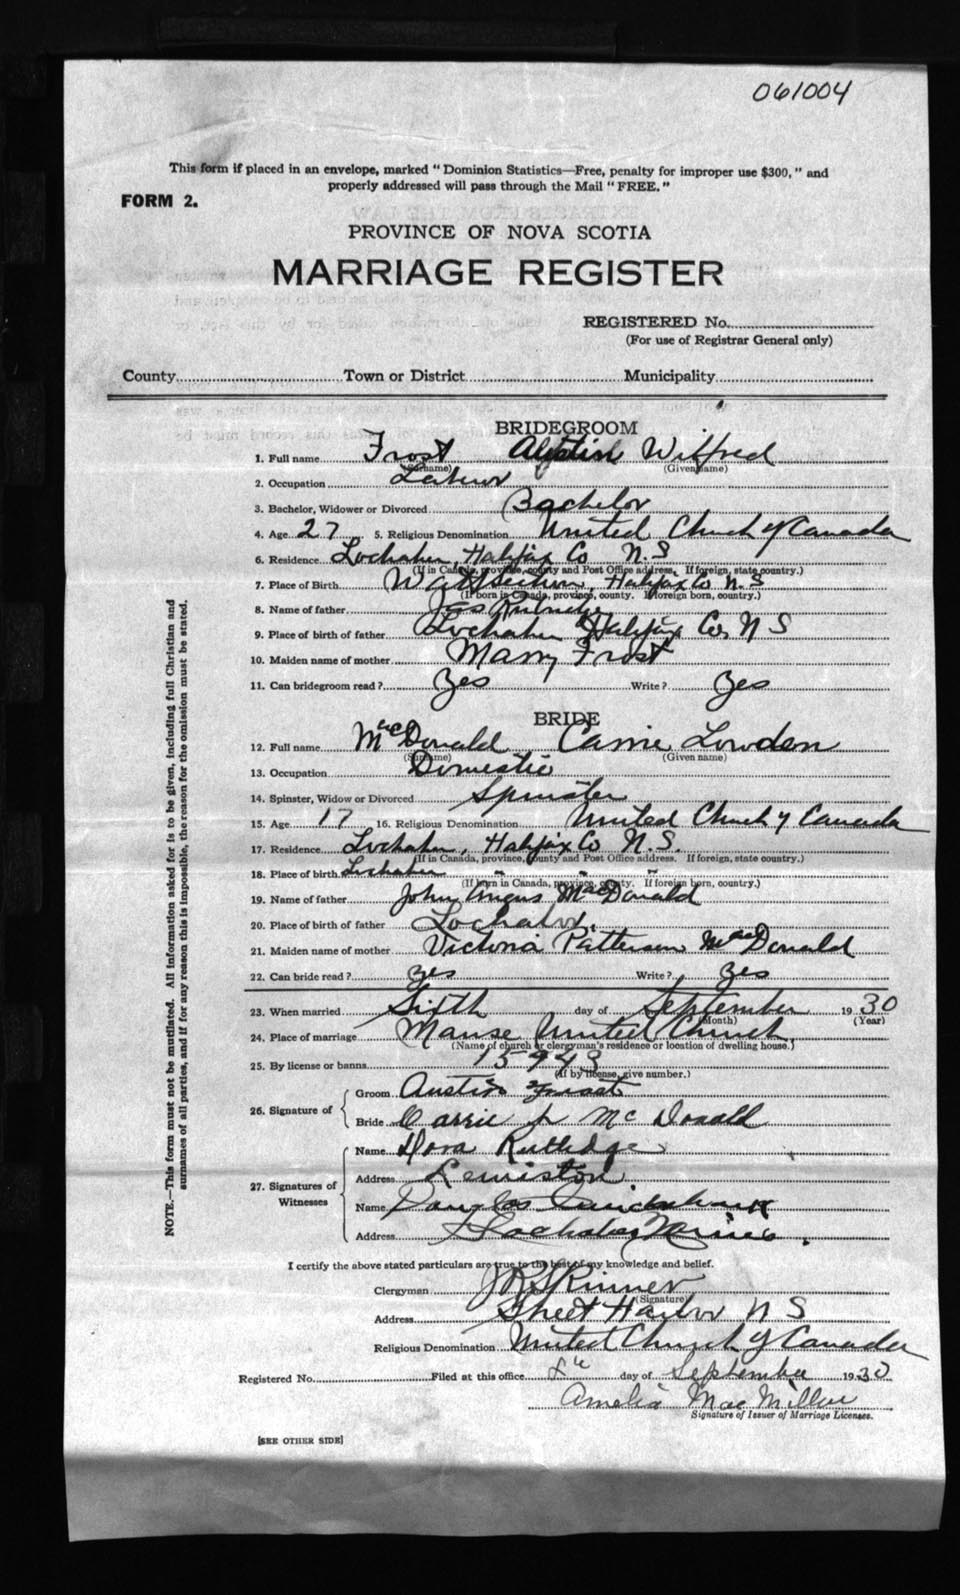 061004
This form if placed in an envelope, marked "Dominion Statistics—Free, penalty for improper use $300," and
properly addressed will pass through the Mail "FREE."
FORM 2.
PROVINCE OF NOVA SCOTIA
MARRIAGE REGISTER
REGISTERED No.
(For use of Registrar General only)
County Town or District Municipality
BRIDEGROOM
1. Full name Frost Austin Wilfred
(Surname) (Given name)
2. Occupation
3. Bachelor, Widower or Divorced Bachelor
4. Age 27 5. Religious Denomination United Church of Canada
6. Residence Lochaber, Halifax Co N.S
(If in Canada, province, county and Post Office address. If foreign, state country.)
7. Place of Birth Halifax Co N.S
(If born in Canada, province, county. If foreign born, country.)
8. Name of father Jas Rutledge
9. Place of birth of father Lochaber Halifax Co, N S
10. Maiden name of mother Mary Frost
11. Can bridegroom read? Yes Write? Yes
BRIDE
12. Full name MacDonald Carrie Lowden
(Surname) (Given name)
13. Occupation Domestic
14. Spinster, Widow or Divorced Spinster
15. Age 17 16. Religious Denomination United Church of Canada
17. Residence Lochaber, Halifax Co N.S.
(If in Canada, province, county and Post Office address. If foreign, state country.)
18. Place of birth Lochaber " " "
(If born in Canada, province, county. If foreign born, country.)
19. Name of father John Angus MacDonald
20. Place of birth of father Lochaber.
21. Maiden name of mother Victoria Patterson MacDonald
22. Can bride read? Yes Write? Yes
23. When married Sixth day of September 1930
(Month) (Year)
24. Place of marriage Manse United Church
(Name of church or clergyman's residence or location of dwelling house.)
25. By license or banns 15943
(If by license, give number.)
26. Signature of
Groom Austin Frost
Bride Carrie L McDonald
27. Signatures of Witnesses
Name Dora Rutledge
Address Lewiston
Name Douglas Cruickshank
Address Lochaber Mines.
I certify the above stated particulars are true to the best of my knowledge and belief.
Clergyman J R Skinner
(Signature)
Address Sheet Harbor N S
Religious Denomination United Church of Canada
Registered No. Filed at this office day of September 1930
Amelia MacMillan
Signature of Issuer of Marriage Licenses.
[SEE OTHER SIDE]
NOTE.—This form must not be mutilated. All information asked for is to be given, including full Christian and
surnames of all parties, and if for any reason this is impossible, the reason for the omission must be stated.